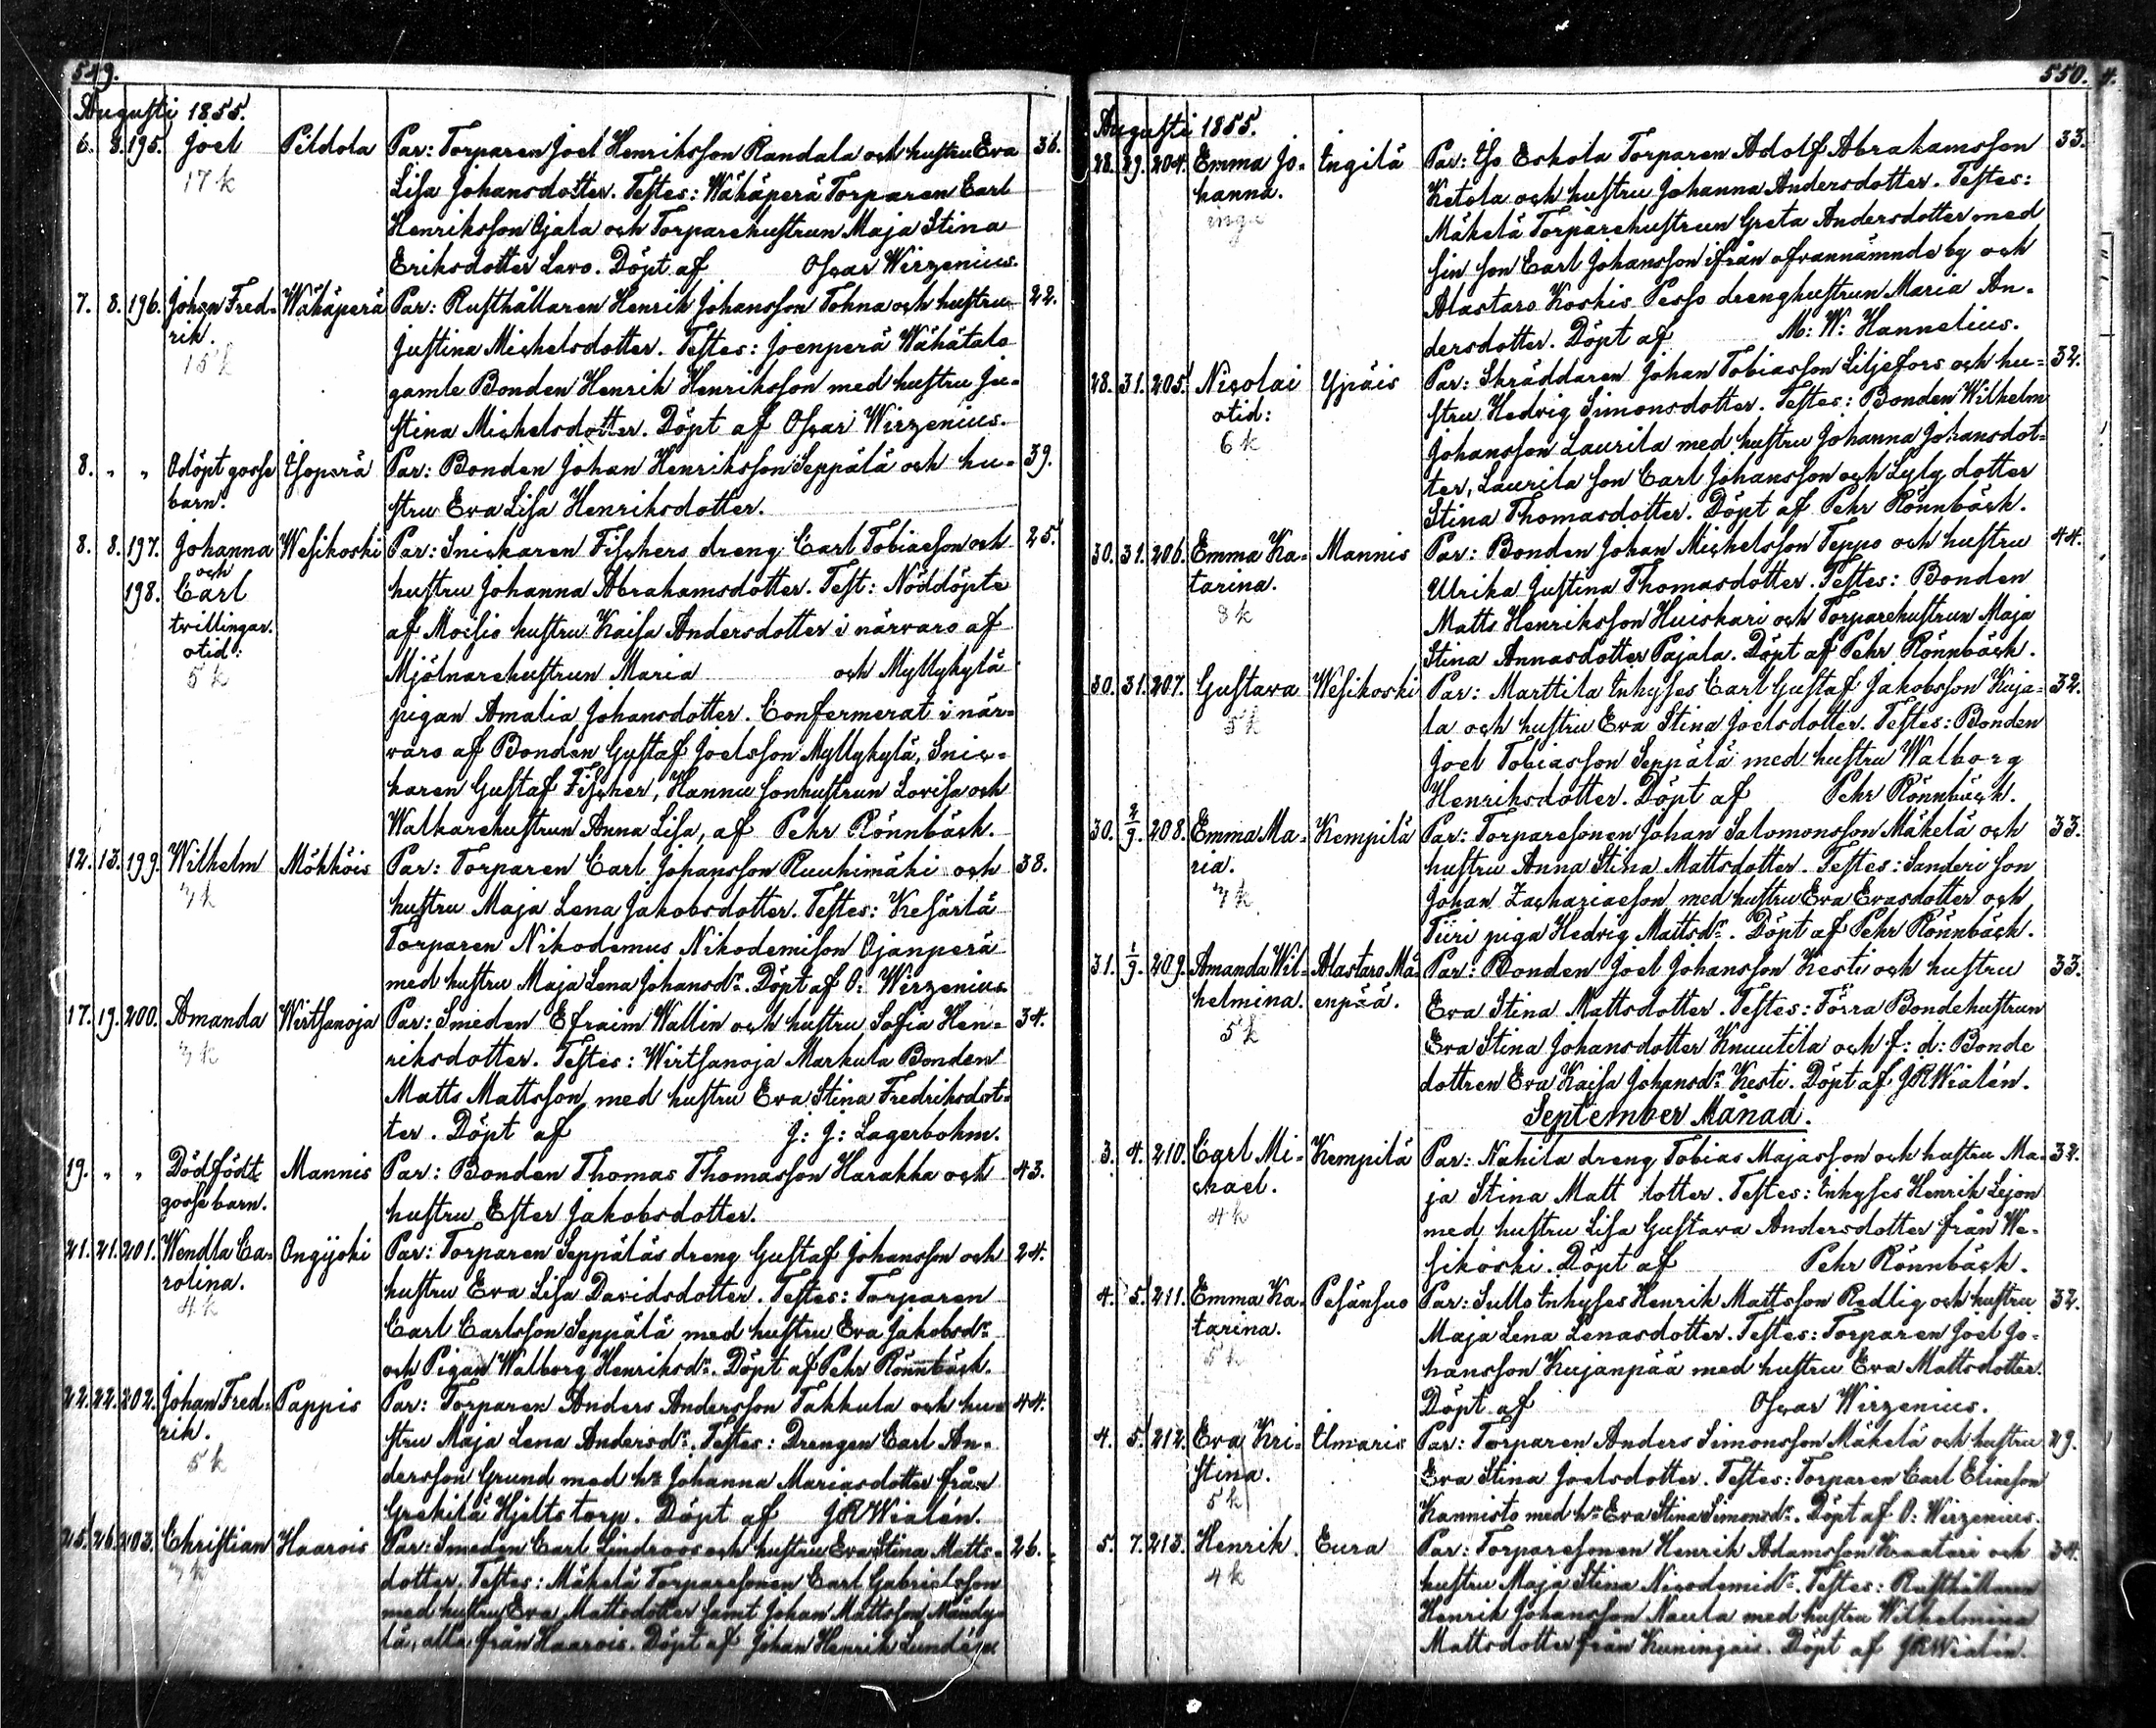 549.
Augusti 1855.
6. 8. 195. Joel Pildola Par: Torparen Joel Henriksson Randala och hustru Eva 36.
17 k Lisa Johansdotter. Testes: Wähäperä Torparen Carl
Henriksson Ojala och Torparehustrun Maja Stina
Eriksdotter Lavo. Döpt af Oscar Wirzenius.
7. 8. 196. Johan Fred- Wähäperä Par: Rusthållaren Henrik Johansson Tohna och hustru 22.
rik. Justina Michelsdotter. Testes: Joenperä Wähätalo
15 k gamle Bonden Henrik Henriksson med hustru Ju-
stina Michelsdotter. Döpt af Oscar Wirzenius.
8. " " Odöpt gosse Isoperä Par: Bonden Johan Henriksson Seppälä och hu- 39.
barn. stru Eva Lisa Henriksdotter.
8. 8. 197. Johanna Wesikoski Par: Snickaren Fischers dreng Carl Tobiasson och 25.
och
198. Carl hustru Johanna Abrahamsdotter. Test: Nöddöpte
tvillingar. af Moisio hustru Kaisa Andersdotter i närvaro af
otid:
5 k Mjölnarehustrun Maria och Myllykylä
pigan Amalia Johansdotter. Confermerat i när-
varo af Bonden Gustaf Joelsson Myllykylä, Snic-
karen Gustaf Fischer, Hannu sonhustrun Lovisa och
Walkarehustrun Anna Lisa, af Pehr Rönnbäck.
12. 13. 199. Wilhelm Mökköis Par: Torparen Carl Johansson Ruuhimäki och 38.
3 k hustru Maja Lena Jakobsdotter. Testes: Kesärlä
Torparen Nikodemus Nikodemison Ojanperä
med hustru Maja Lena Johansdr. Döpt af O: Wirzenius
17. 19. 200. Amanda Wirtsanoja Par: Smeden Efraim Wallin och hustru Sofia Hen- 34.
3 k riksdotter. Testes: Wirtsanoja Markula Bonden
Matts Mattsson med hustru Eva Stina Fredriksdot-
ter. Döpt af J: J: Lagerbohm.
19. " " Dödfödt Mannis Par: Bonden Thomas Thomasson Harakka och 43.
gossebarn. hustru Ester Jakobsdotter.
21. 21. 201. Wendla Ca- Ongijoki Par: Torparen Seppäläs dreng Gustaf Johansson och 24.
rolina. hustru Eva Lisa Davidsdotter. Testes: Torparen
4 k Carl Carlsson Seppälä med hustru Eva Jakobsdr
och Pigan Walborg Henriksdr. Döpt af Pehr Rönnbäck.
22. 22. 202. Johan Fred- Pappis Par: Torparen Anders Andersson Takkula och hu- 44.
rik. stru Maja Lena Andersdr. Testes: Drengen Carl An-
5 k dersson Grund med h:u Johanna Mariasdotter från
Grekilä Hjeltstorp. Döpt af JRWialén.
25. 26. 203. Christian Haarois Par: Smeden Carl Lindroos och hustru Eva Stina Matts- 26.
3 k dotter. Testes: Mäkelä Torparesonen Carl Gabrielsson
med hustru Eva Mattsdotter samt Johan Mattsson Mändy-
lä, alla från Haarois. Döpt af Johan Henrik Lundén.
550. 4.
Augusti 1855.
28. 29. 204. Emma Jo- Engilä Par: Iso Eskola Torparen Adolf Abrahamsson 33.
hanna. Ketola och hustru Johanna Andersdotter. Testes:
Mäkelä Torparehustrun Greta Andersdotter med
sin son Carl Johansson ifrån ofvannämnde by och
Alastaro Koskis Pesso drenghustrun Maria An-
dersdotter. Döpt af M: W: Hannelius.
28. 31. 205. Nicolai Ypäis Par: Skräddaren Johan Tobiasson Liljefors och hu- 32.
otid: stru Hedvig Simonsdotter. Testes: Bonden Wilhelm
6 k Johansson Laurila med hustru Johanna Johansdot-
ter, Laurila son Carl Johansson och Lyly dotter
Stina Thomasdotter. Döpt af Pehr Rönnbäck.
30. 31. 206. Emma Ka- Mannis Par: Bonden Johan Michelsson Teppo och hustru 44.
tarina. Ulrika Justina Thomasdotter. Testes: Bonden
8 k Matts Henriksson Huiskari och Torparehustrun Maja
Stina Annasdotter Pajala. Döpt af Pehr Rönnbäck.
30. 31. 207. Gustava Wesikoski Par: Marttila Inhyses Carl Gustaf Jakobsson Kuja- 32.
5 k la och hustru Eva Stina Joelsdotter. Testes: Bonden
Joel Tobiasson Seppälä med hustru Walborg
Henriksdotter. Döpt af Pehr Rönnbäck.
30. 2/9. 208. Emma Ma- Kempilä Par: Torparesonen Johan Salomonsson Mäkelä och 33.
ria. hustru Anna Stina Mattsdotter. Testes: Sanderi son
3 k Johan Zachariasson med hustru Eva Evasdotter och
Tiiri piga Hedvig Mattsdr. Döpt af Pehr Rönnbäck.
31. 1/9. 209. Amanda Wil- Alastaro Mä- Par: Bonden Joel Johansson Kesti och hustru 33.
helmina. enpää. Eva Stina Mattsdotter. Testes: Förra Bondehustrun
5 k Eva Stina Johansdotter Knuutila och f: d: Bonde
dottren Eva Kaisa Johansdr Kesti. Döpt af JRWialén.
September Månad.
3. 4. 210. Carl Mi- Kempilä Par: Nahila dreng Tobias Majasson och hustru Ma- 32.
chael. ja Stina Matt dotter. Testes: Inhyses Henrik Lejon
4 k med hustru Lisa Gustava Andersdotter från We-
sikoski. Döpt af Pehr Rönnbäck.
4. 5. 211. Emma Ka- Pesänsuo Par: Sullo Inhyses Henrik Mattsson Redlig och hustru 32.
tarina. Maja Lena Lenasdotter. Testes: Torparen Joel Jo-
5 k hansson Kujanpää med hustru Eva Mattsdotter.
Döpt af Oscar Wirzenius.
4. 5. 212. Eva Kri- Ilmaris Par: Torparen Anders Simonsson Mäkelä och hustru 29.
stina. Eva Stina Joelsdotter. Testes: Torparen Carl Eliasson
5 k Kannisto med h:u Eva Stina Simonsdr. Döpt af O: Wirzenius.
5. 7. 213. Henrik. Eura Par: Torparesonen Henrik Adamsson Kraatari och 34.
4 k hustru Maja Stina Nicodemidr. Testes: Rusthållaren
Henrik Johansson Naula med hustru Wilhelmina
Mattsdotter från Kuningais. Döpt af JRWialén.